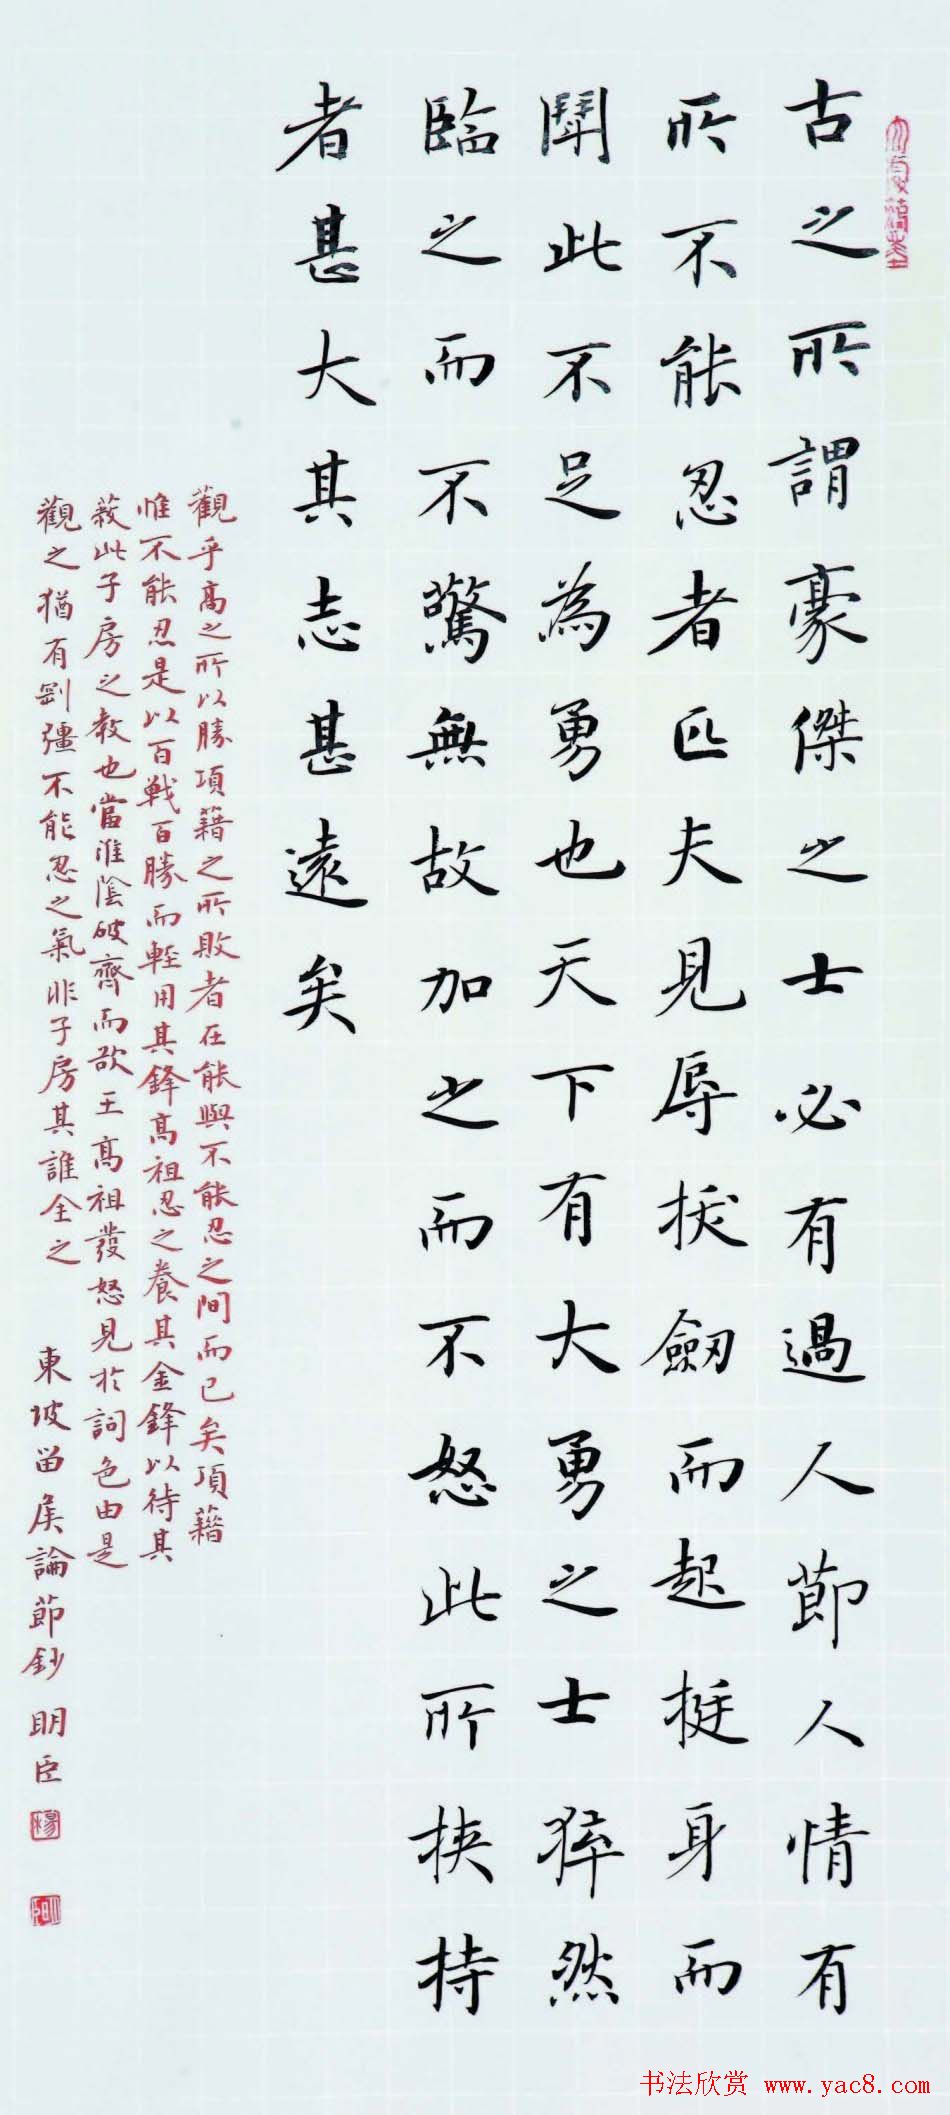 古之所謂豪傑之士必有過人節人情有
所不能忍者匹夫見辱拔劔而起挺身而
鬭此不足為勇也天下有大勇之士猝然
臨之而不驚無故加之而不怒此所挾持
者甚大其志甚遠矣
觀乎高之所以勝項籍之所敗者在能與不能忍之間而已矣項籍
惟不能忍是以百戰百勝而輕用其鋒高祖忍之養其金鋒以待其
蔽此子房之教也當淮陰破齊而欲王高祖發怒見於詞色由是
觀之猶有剛彊不能忍之氣非子房其誰全之 東坡留侯論節鈔 明臣
书法欣赏 www.yac8.com